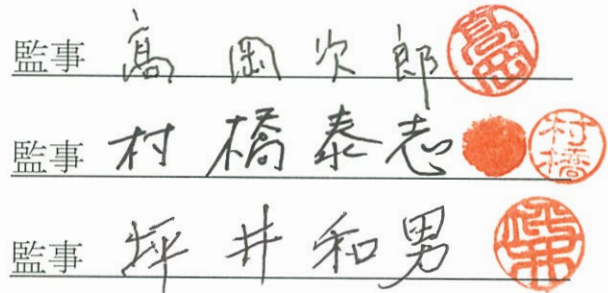 監事 高岡次郎
監事 村橋泰志 村橋
監事 坪井和男